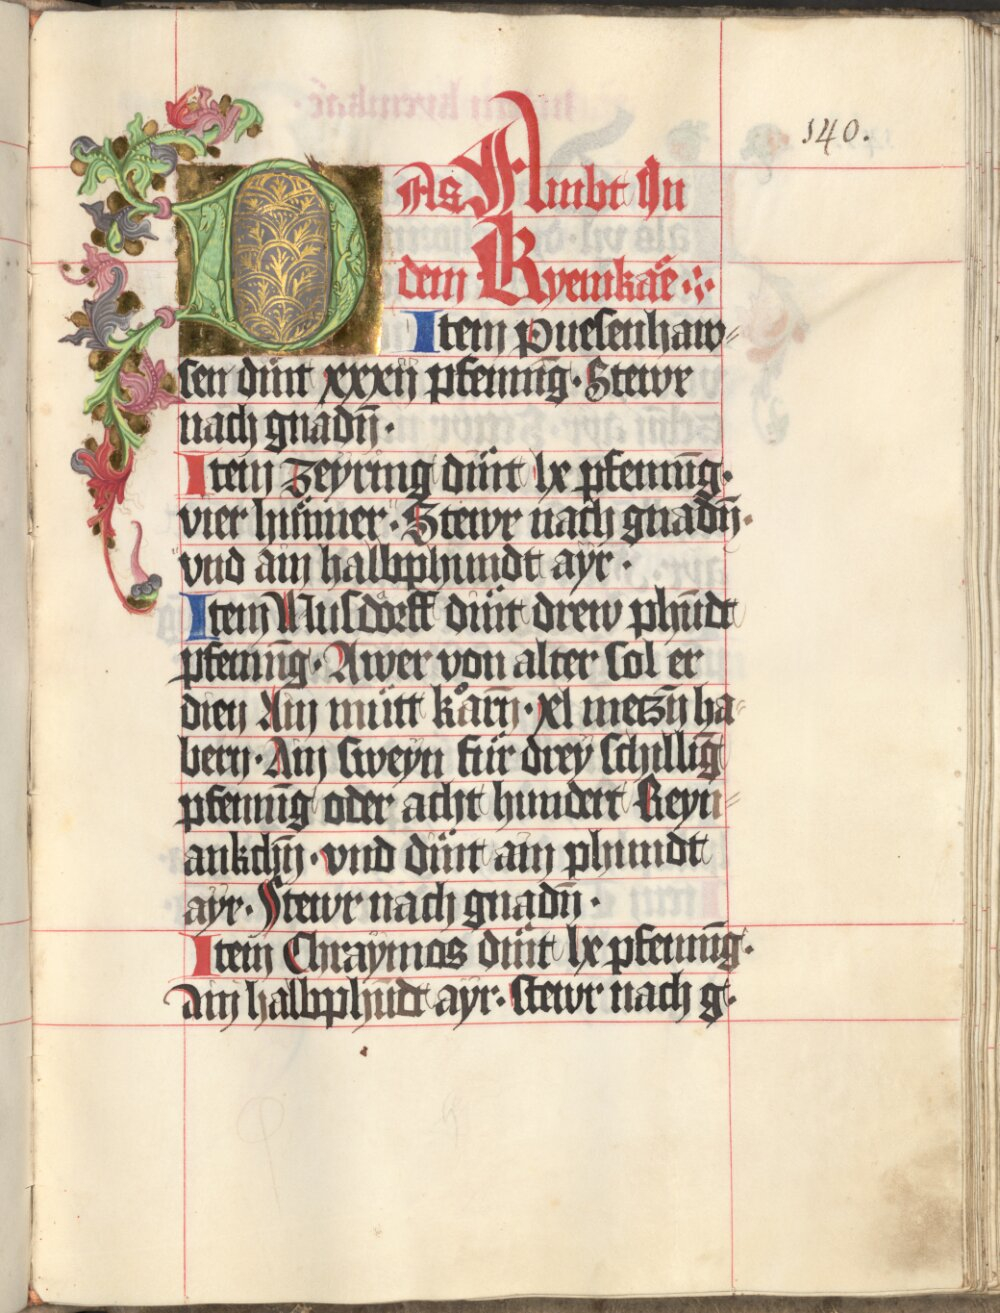 140.
DAs Ambt In
dem Kyemkaē
Item Puesenhaw-
sen dint xxxij pfenning. Stewr
nach gnadn̄.
Item Zeyring dint lx pfennīg.
vier hünner. Stewr nach gnadn̄.
vnd ain halbphundt ayr.
Item Nusdorff dint drew phūdt
pfennīg. Awer von alter sol er
dien Ain mütt korn̄. xl metzn̄ ha-
bern. Ain sweyn für drey schillīg
pfennīg oder acht hundert Reyn-
ankchn̄. vnd dint ain phundt
ayr. Stewr nach gnadn̄.
Item Chraymos dint lx pfennīg.
Ain halbphūdt ayr. stewr nach g.